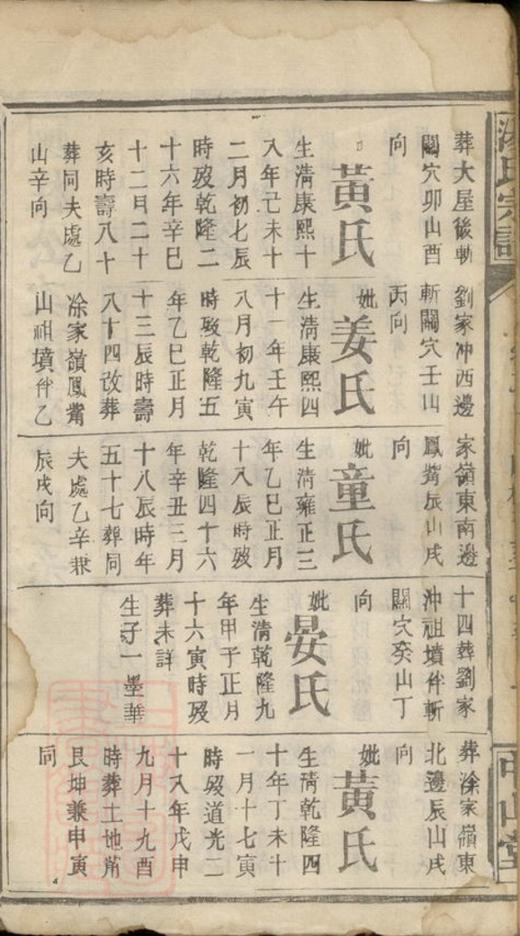 葬大屋後斬
關穴卯山酉
向
黃氏
生清康熙十
八年己未十
二月初七辰
時歿乾隆二
十六年辛巳
十二月二十
亥時壽八十
葬同夫處乙
山辛向
劉家冲西邊
斬關穴壬山
丙向
妣
姜氏
生清康熙四
十一年壬午
八月初九寅
時歿乾隆五
年乙巳正月
十三辰時壽
八十四改葬
凃家嶺鳳觜
山祖墳伴乙
家嶺東南邊
鳳觜辰山戌
向
妣
童氏
生清雍正三
年乙巳正月
十八辰時歿
乾隆四十六
年辛丑三月
十八辰時年
五十七葬同
夫處乙辛兼
辰戌向
十四葬劉家
冲祖墳伴斬
關穴癸山丁
向
妣
晏氏
生清乾隆九
年甲子正月
十六寅時歿
葬未詳
生子一 墨華
葬凃家嶺東
北邊辰山戌
向
妣
黃氏
生清乾隆四
十年丁未十
一月十七寅
時歿道光二
十八年戊申
九月十九酉
時葬土地甫
艮坤兼申寅
同
氏宗譜
中山堂